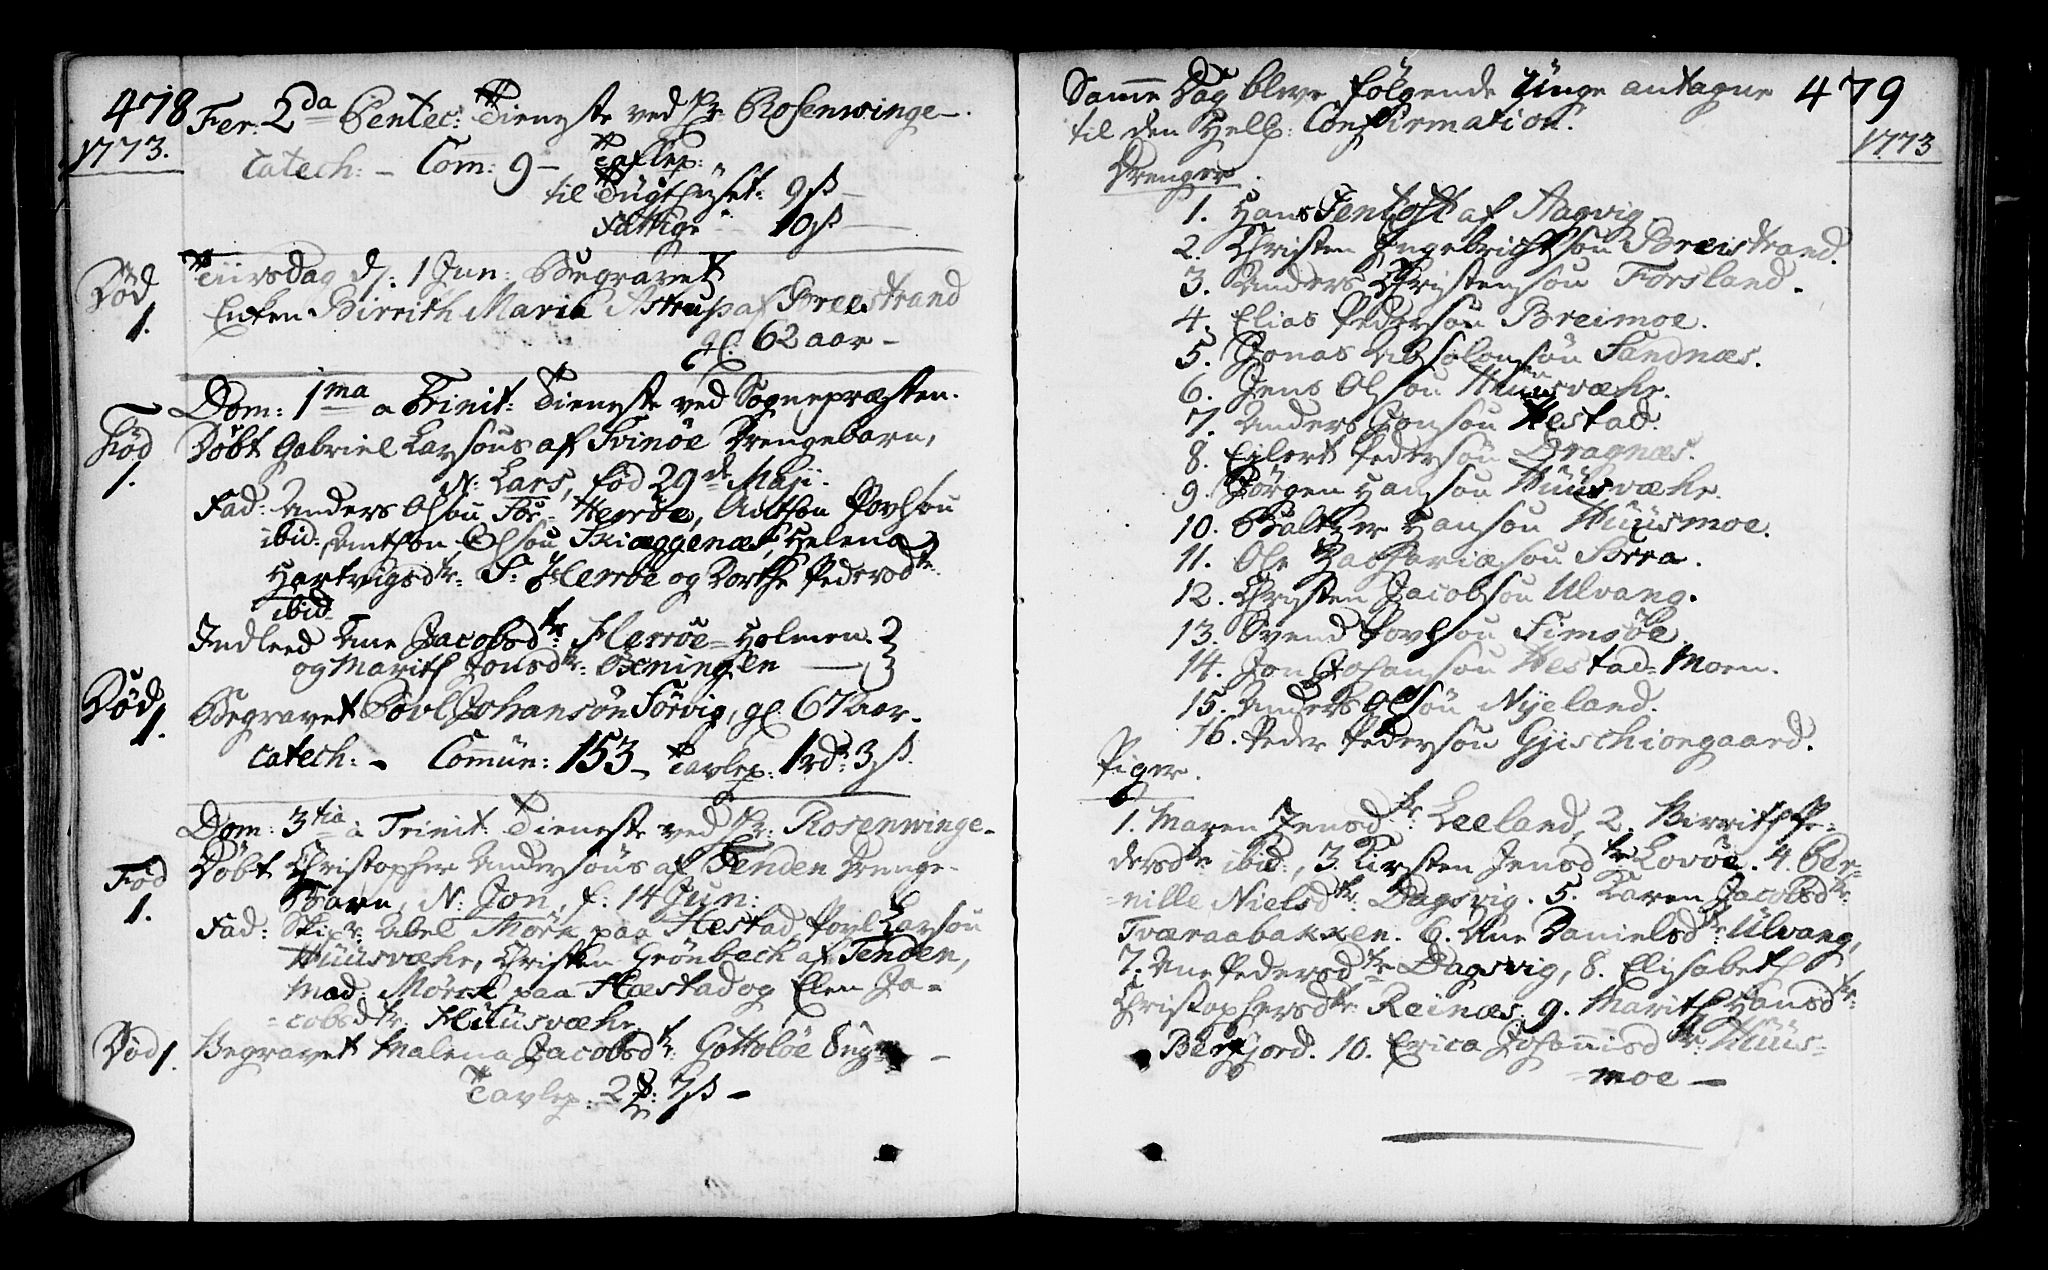 478
1773.
Fer: 2da Pentec: Tieneste ved Hr Rosenwinge.
Catech: - Com: 9 - Taflep:
til Tugthuset: 9 ß
Fattige 10 ß
Død 1.
Tiirsdag d: 1 Jun: Begravet
Enken Birrith Maria Astrup af Breestrand
gl. 62 aar -
Dom: 1ma a Trinit: Tieneste ved Sognepræsten.
Fød 1.
Døbt Gabriel Larsøns af Svinøe Drengebarn,
N: Lars, fød 29de Maji.
Fad: Anders Olsøn Herröe, Anthon Povlsøn
ibid: Anthon Olsøn Skiæggenæs, Helena
Hartvigsdtr: S: Herröe og Dorthe Pedersdtr:
ibid:
Indleed Ane Jacobsdtr: Herröe-Holmen.
og Marith Jonsdtr: Öxningen
Død 1.
Begravet Povl Johansøn Sörvig, gl. 67 aar.
Catech: - Commun: 153 - Tavlep: 1 rd: 3 ß.
Dom: 3tia a Trinit: Tieneste ved Hr: Rosenwinge.
Fød 1.
Døbt Christopher Andersøns af Tenden Drenge-
Barn, N: Jon, f: 14 Jun:
Fad: Skipr: Abel Mörk paa Hestad, Povl Larsøn
Huusvæhr, Christen Grönbech af Tenden,
Mad: Mörck paa Hæstad og Elen Ja-
-cobsdtr: Huusvæhr.
Død 1.
Begravet Malena Jacobsdtr: Gottoløe
Tavlep: 2 7 ß -
479
1773
Samme Dag bleve følgende Unge antagne
til den Hellg: Confirmation.
Drenger.
1. Hans Jentoft af Aagvig.
2. Christen Ingebrichtsøn Breistrand.
3. Anders Christensøn Forsland.
4. Elias Pedersøn Breimoe.
5. Jonas Absolonsøn Sandnæs.
6. Jens Olsøn Huusvæhr.
7. Anders Jonsøn Hestad.
8. Eilert Pedersøn Dragnæs.
9. Jørgen Hansøn Huusvæhr.
10. Baltzer Hansøn Huusmoe.
11. Ole Zachariæsøn Sørra.
12. Christen Jacobsøn Ulvang.
13. Svend Povlsøn Simsöe
14. Jon Johansøn Hestad-Moen.
15. Anders Olsøn Nyeland.
16. Peder Pedersøn Gjischiongaard.
Piger.
1. Maren Jensdtr: Leeland, 2. Birrith Pe-
dersdtr ibid:, 3. Kirsten Jensdtr Lovöe. 4. Per-
-nille Nielsdtr: Dagsvig. 5. Karen Jacobsdtr:
Tværaabakken. 6. Ane Danielsdtr: Ulvang,
7. Ane Pedersdtr Dagsvig, 8. Elisabeth
Christophersdtr: Reinæs. 9. Marith Hansdtr:
Bergfjord. 10. Erica Johannisdtr: Huus-
-moe -